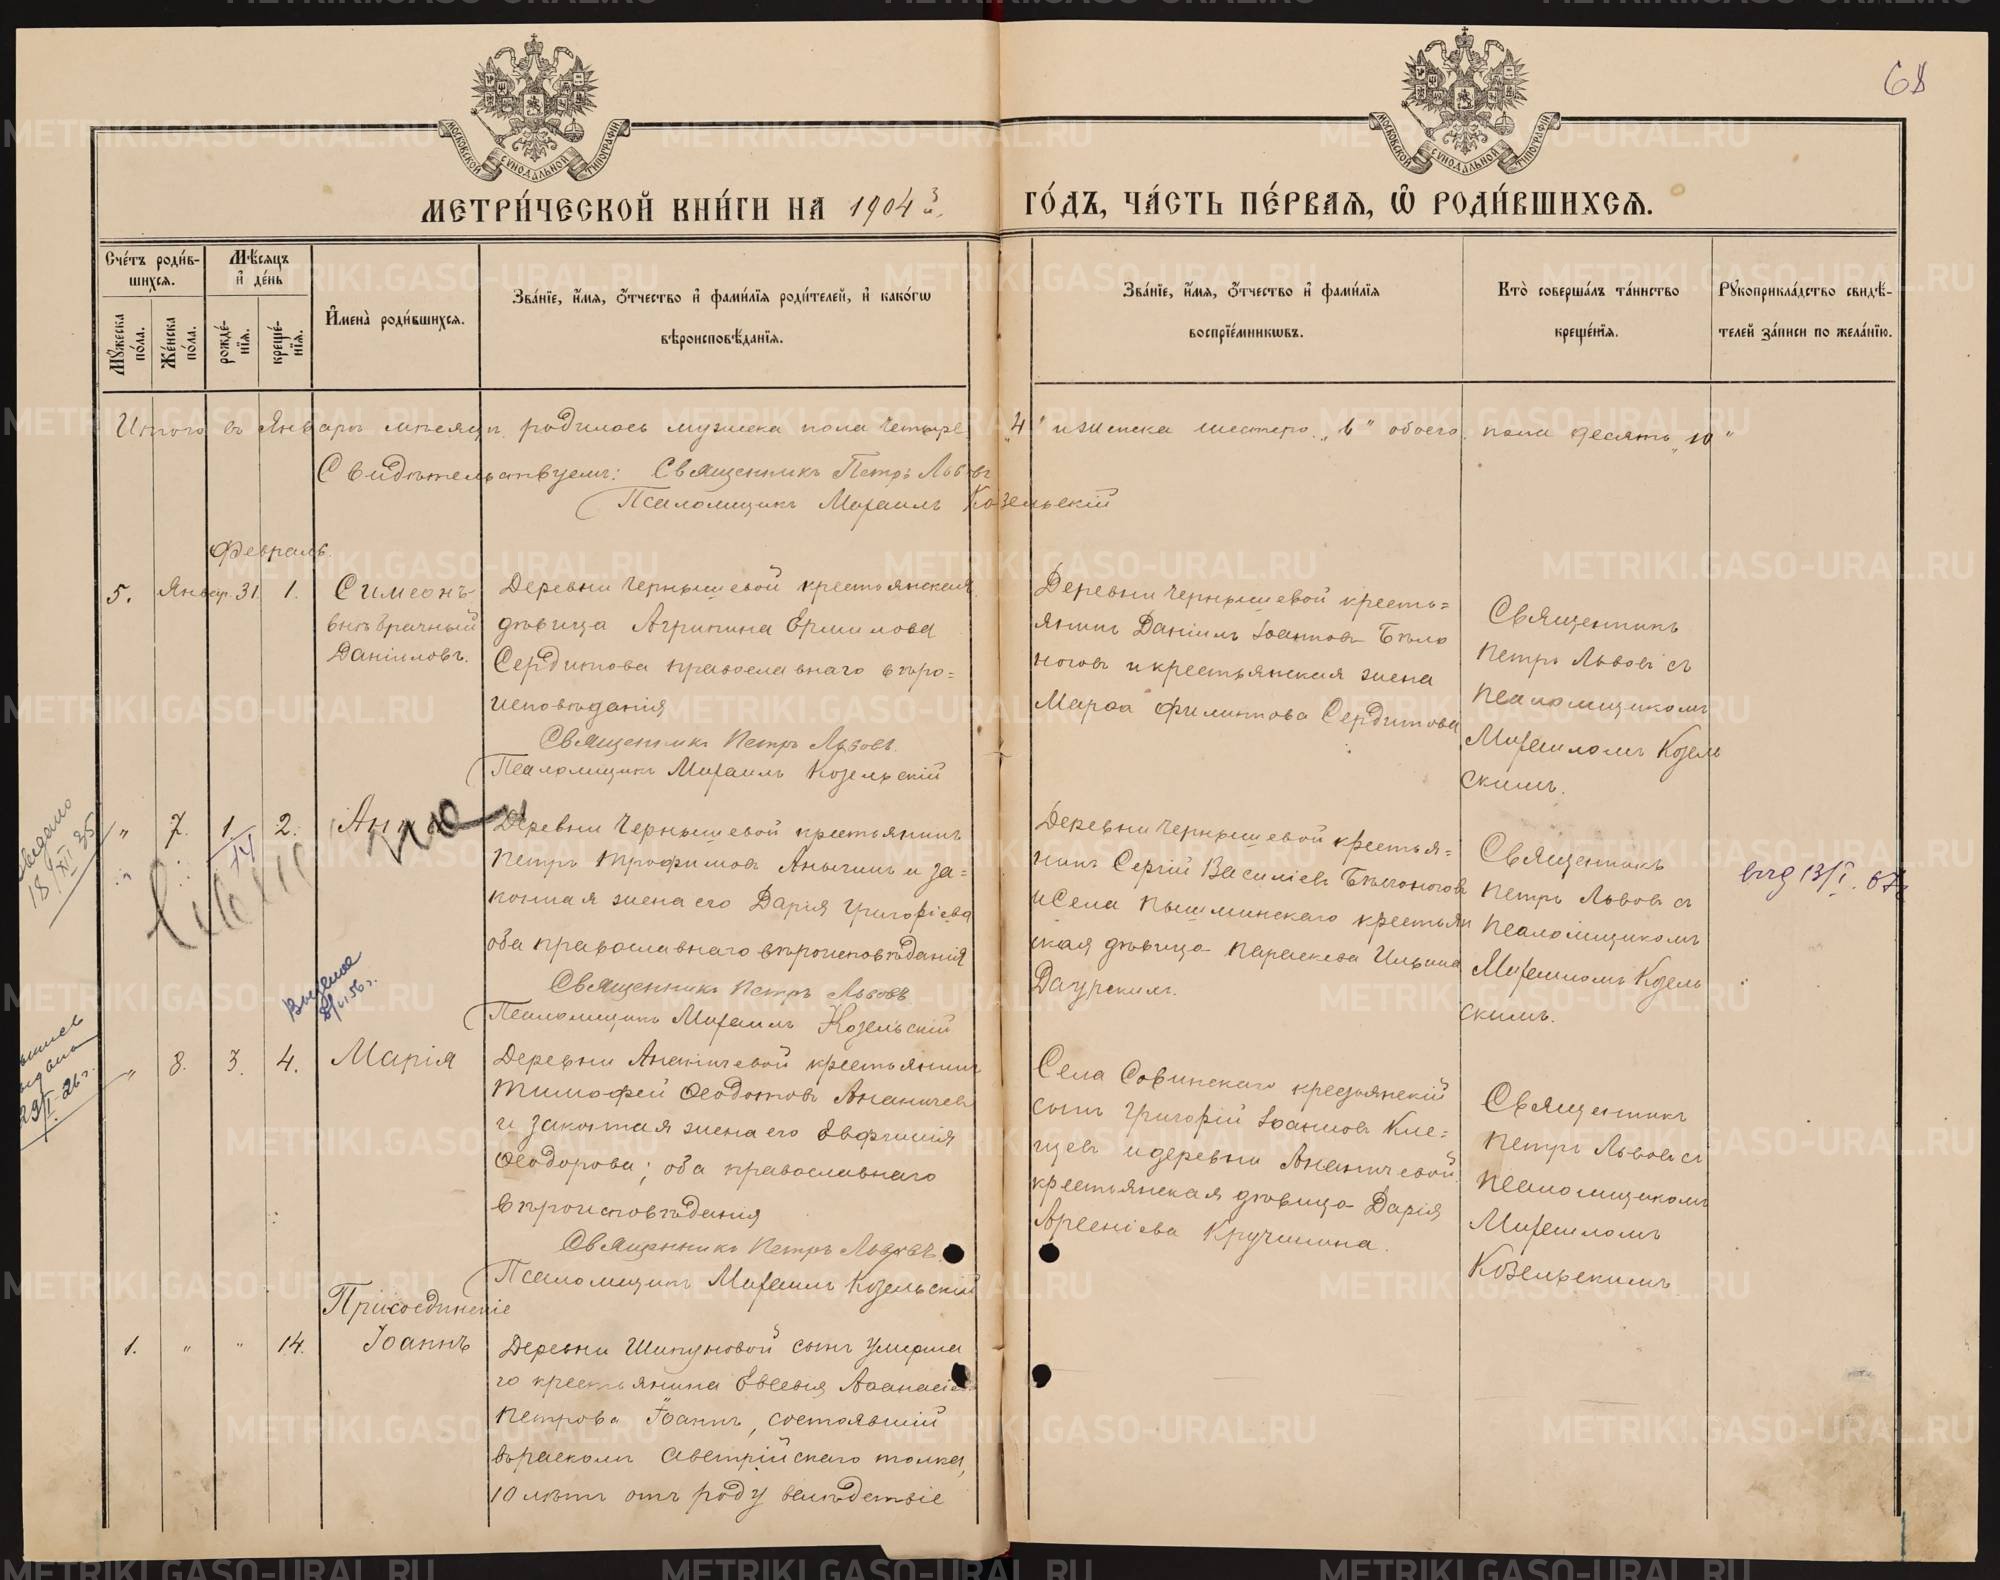 68
МОСКОВСКОЙ СѴНОДАЛЬНОЙ ТИПОГРАФІИ
МОСКОВСКОЙ СѴНОДАЛЬНОЙ ТИПОГРАФІИ
МЕТРИ́ЧЕСКОЙ КНИ́ГИ НА 1904 й. ГО́ДЪ, ЧА́СТЬ ПЕ́РВАѦ, Ѡ҆ РОДИ́ВШИХСѦ.
Сче́тъ роди́в-
шихся.
Мꙋ́жеска по́ла.
Же́нска по́ла.
Мѣ́сяцъ и҆ де́нь
рожде́-нїя.
креще́-нїя.
И҆мена̀ роди́вшихся.
Зва́нїе, и҆́мя, ѻ҆́тчество и҆ фами́лїя роди́телей, и҆ како́гѡ
вѣроисповѣ́данїя.
Зва́нїе, и҆́мя, ѻ҆́тчество и҆ фами́лїя
воспрїе́мникѡвъ.
Кто̀ соверша́лъ та́инство
креще́нїя.
Рꙋкоприкла́дство свидѣ́-
телей за́писи по жела́нїю.
Итого въ Январѣ мѣсяцѣ родилось мужеска пола четыре „4" и женска шестеро „6" обоего пола десять „10"
Свидѣтельствуемъ: Священникъ Петръ Львовъ
Псаломщикъ Михаилъ Козельскій
Февраль.
5. Январ. 31 1.
Симеонъ
внѣбрачный
Даниловъ.
Деревни Чернышевой крестьянская
дѣвица Агрипина Ермилова
Сердитова православнаго вѣро=
исповѣданія
Священникъ Петръ Львовъ.
Псаломщикъ Михаилъ Козельскій
Деревни Чернышевой кресть=
янинъ Даніилъ Іоанновъ Бѣло
ноговъ и крестьянская жена
Марѳа Филиппова Сердитова
Священникъ
Петръ Львовъ съ
псаломщикомъ
Михаиломъ Козель
скимъ.
" 7. 1 2.
Анна
Деревни Чернышевой крестьянинъ
Петръ Трофимовъ Аньчинъ и за=
конная жена его Дарія Григоріева
оба православнаго вѣроисповѣданія
Священникъ Петръ Львовъ
Псаломщикъ Михаилъ Козельскій
Деревни Чернышевой крестья=
нинъ Сергій Василіевъ Бѣлоноговъ
и села Пышминскаго крестьян
ская дѣвица Параскева Ильина
Священникъ
Петръ Львовъ съ
псаломщикомъ
Михаиломъ Козель
скимъ.
18/XI 35
" 8. 3. 4.
Марія
Деревни Ананичевой крестьянинъ
Тимофей Ѳеодотовъ Ананичевъ
и законная жена его Евфимія
Ѳеодорова; оба православнаго
вѣроисповѣданія
Священникъ Петръ Львовъ
Псаломщикъ Михаилъ Козельскій
Села Совинскаго крестьянскій
сынъ Григорій Іоанновъ Кле=
щевъ и деревни Ананичевой
крестьянская дѣвица Дарія
Арсеніева Кручинина.
Священникъ
Петръ Львовъ съ
псаломщикомъ
Михаиломъ
Козельскимъ
Присоединеніе
1. " " 14.
Іоаннъ
Деревни Шипуновой сынъ умерша
го крестьянина Евсевія Аѳанасіева
Петрова Іоаннъ, состоявшій
въ расколѣ Австрійскаго толка,
10 лѣтъ отъ роду вслѣдствіе
METRIKI.GASO-URAL.RU